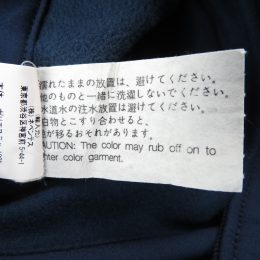 濡れたままの放置は、避けてください。
他のものと一緒に洗濯しないでください。
水道水の注水放置は避けてください。
白物とこすり合わせると、
色が移るおそれがあります。
CAUTION: The color may rub off on to
lighter color garment.
(株)ネペンテス
東京都渋谷区神宮前5-44-1